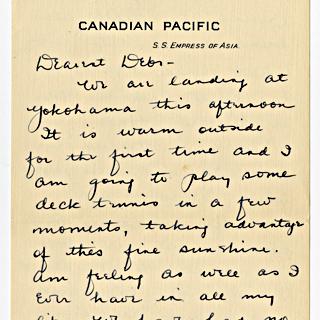 CANADIAN PACIFIC
S.S. EMPRESS OF ASIA.
Dearest Debs -
We are landing at
Yokohama this afternoon
It is warm outside
for the first time and I
am going to play some
deck tennis in a few
moments, taking advantage
of this fine sunshine.
Am feeling as well as I
Ever have in all my